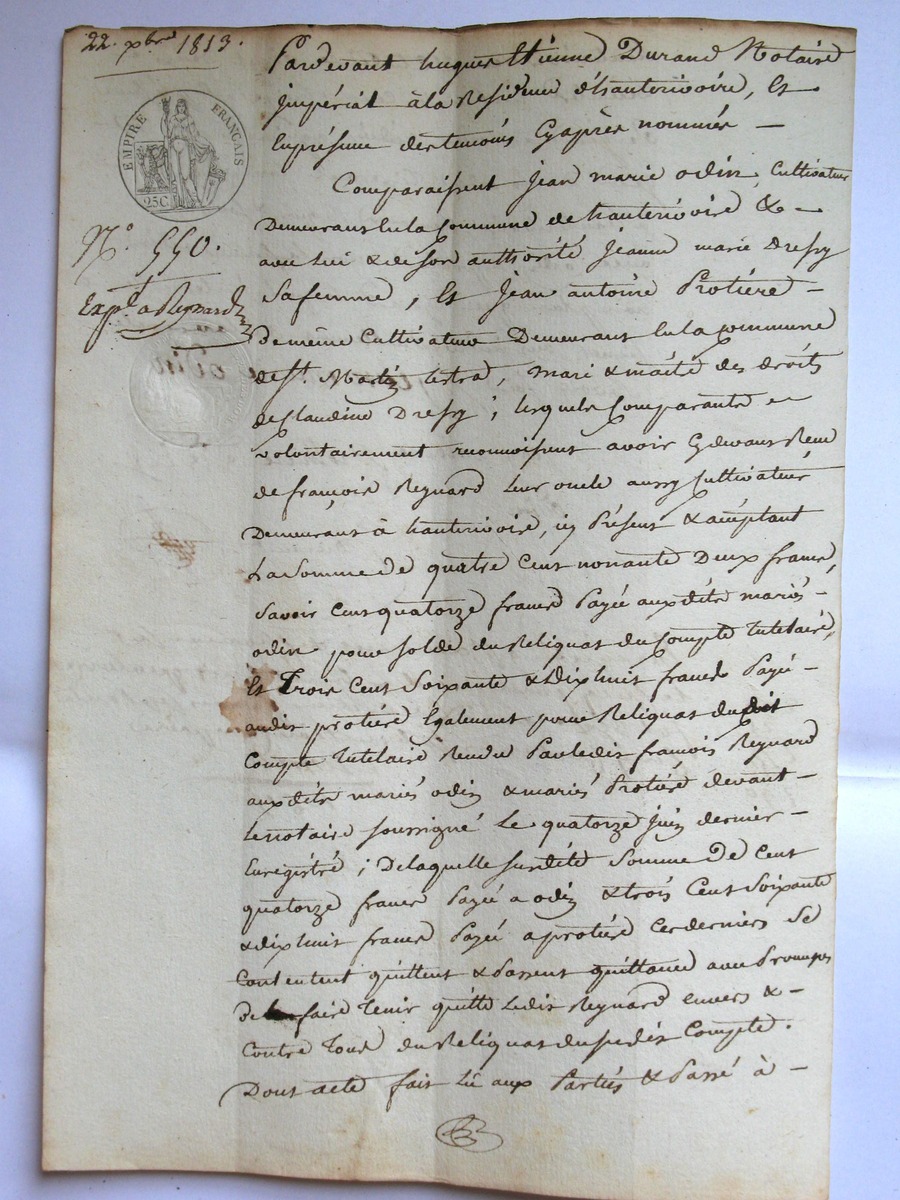 22. xbre 1813.
EMPIRE FRANÇAIS
25C
N°. 550.
Expd. a Reynard
Pardevant hugues Etienne Durand Notaire
impérial à la Residence d'hauterivoire, Et
En présence des temoins Cyaprès nommés —
Comparaissent Jean marie odin, Cultivateur
Demeurans En la Commune de hauterivoire & —
avec Lui & de son authorité Jeanne marie Dressy
sa femme, Et Jean antoine Protière —
de même Cultivateur Demeurans En la commune
de St. Martin lestra, mari & maitre des droits
de Claudine Dressy; lesquels Comparants —
volontairement reconnoissent avoir Cydevans Recu
de françois Reynard Leur oncle aussy Cultivateur
Demeurans à hauterivoire, icy Présent & acceptant
La Somme de quatre Cent nonante Deux francs,
savoir Cent quatorze francs Payée auxdits mariés —
odin pour solde du Reliquat du Compte tutelaire,
Et Trois Cent Soixante & Dixhuit francs Payé —
audit protière Egalement pour Reliquat dudit
Compte tutelaire Rendu Par ledit françois Reynard
auxdits mariés odin & mariés Protière devant —
Le notaire soussigné Le quatorze juin dernier —
Enregistré; De laquelle susdite Somme de Cent
quatorze francs Payée a odin & trois Cent Soixante
& dixhuit francs Payée a protière ces derniers Se
Contentent quittent & Passent quittance avec Promesse
de faire Tenir quitte Ledit Reynard envers & —
Contre Tous du Reliquat du susdit Compte.
Dont acte fait Lû aux Parties & Passé à —